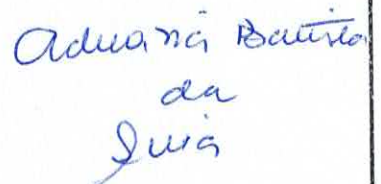 Adriana Batista
da
Silva